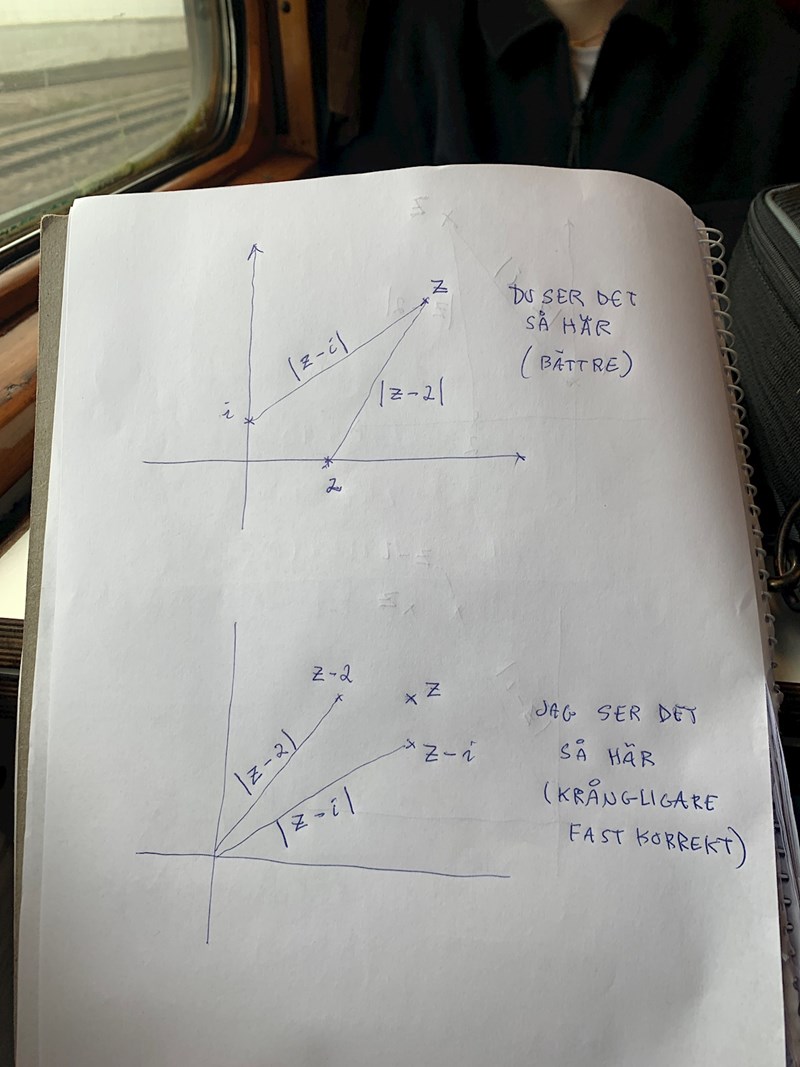 z
DU SER DET
SÅ HÄR
(BÄTTRE)
|z-i|
|z-2|
i
2
z-2
z
JAG SER DET
SÅ HÄR
z-i
|z-2|
|z-i|
(KRÅNGLIGARE
FAST KORREKT)